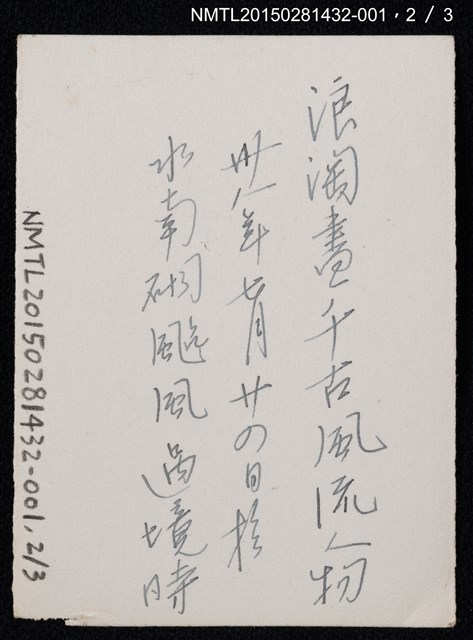 NMTL20150281432-001，2 / 3
浪淘盡千古風流人物
卅八年七月廿四日於
水南硐颱風過境時
NMTL20150281432-001, 2/3